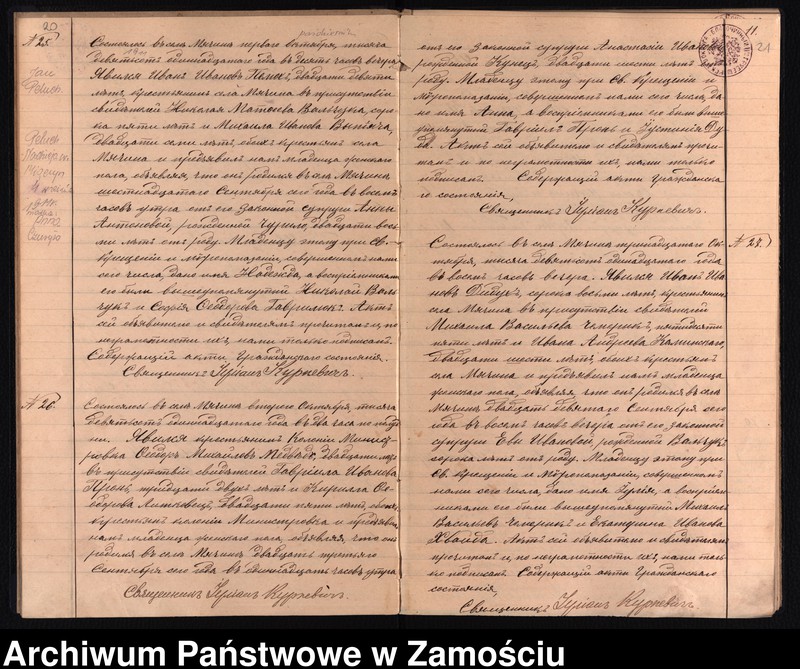 20
№ 25.
Состоялся въ селѣ Мячинѣ перваго октября, тысяча
девятьсотъ одиннадцатаго года въ десять часовъ вечера
Явился Иванъ Ивановъ двадцати девяти
лѣтъ, крестьянинъ села Мячина въ присутствіи
свидѣтелей Николая Матѳеева Вальчука, соро
ка пяти лѣтъ и Михаила Иванова
двадцати семи лѣтъ, обоихъ крестьянъ села
Мячина и предъявилъ намъ младенца женскаго
пола, объявляя, что онъ родился въ селѣ Мячинѣ
шестнадцатаго Сентября сего года въ восемь
часовъ утра отъ его законной супруги Анны
Антоновой, рожденной Чурило, двадцати вось
ми лѣтъ отъ роду. Младенцу этому при Св.
крещеніи и мѵропомазаніи, совершенномъ нами
сего числа, дано имя Надежда, а воспріемниками
его были вышеупомянутый Николай Валь
чукъ и Софія Ѳедорова Гаврилюкъ. Актъ
сей объявителю и свидѣтелямъ прочитанъ и, по
неграмотности ихъ, нами только подписанъ.
Содержащій акты гражданскаго состоянія.
Священникъ Іуліанъ Куркевичъ.
№ 26.
Состоялся въ селѣ Мячинѣ втораго Октября, тысяча
девятьсотъ одиннадцатаго года въ два часа по полуд
ни. Явился крестьянинъ Колоніи Минист-
ровка двадцати
въ присутствіи свидѣтелей Гавріила Иванова
Пронь, тридцати двухъ лѣтъ и Кирилла Ѳе
дорова двадцати пяти лѣтъ,
крестьянъ колоніи Министровка и предъявилъ
намъ младенца женскаго пола, объявляя, что онъ
родился въ селѣ Мячинѣ двадцать третьяго
Сентября сего года въ одиннадцать часовъ утра
Священникъ Іуліанъ Куркевичъ.
Jan
11.
21
отъ его законной супруги Анастасіи Ивановой
рожденной Кунецъ, двадцати шести лѣтъ отъ
роду. Младенцу этому при Св. Крещеніи и
мѵропомазаніи, совершенномъ нами сего числа, да
но имя Анна, а воспріемниками его были выше
упомянутый Гавріилъ Пронь и Іустинія Ду
да. Актъ сей объявителю и свидѣтелямъ прочи
танъ и по неграмотности ихъ, нами только
подписанъ. Содержащій акты гражданска
го состоянія,
Священникъ Іуліанъ Куркевичъ.
Состоялся въ селѣ Мячинѣ тринадцатаго Ок
тября, тысяча девятьсотъ одиннадцатаго года
въ восемь часовъ вечера. Явился Иванъ Ива
новъ Дидухъ, сорока восьми лѣтъ, крестьянинъ
села Мячина въ присутствіи свидѣтелей
Михаила Васильева пятидесяти
пяти лѣтъ и Ивана Андреева Калинскаго,
двадцати шести лѣтъ, обоихъ крестьянъ
села Мячина и предъявилъ намъ младенца
женскаго пола, объявляя, что онъ родился въ селѣ
Мячинѣ двадцать девятаго Сентября сего
года въ восемь часовъ вечера отъ его законной
супруги Евы Ивановой, рожденной Вальчукъ
сорока лѣтъ отъ роду. Младенцу этому при
Св. крещеніи и мѵропомазаніи, совершенномъ
нами сего числа, дано имя Іулія, а воспріем
никами его были вышеупомянутый Михаилъ
Васильевъ и Екатерина Иванова
Актъ сей объявителю и свидѣтелямъ
прочитанъ и, по неграмотности ихъ, нами толь
ко подписанъ. Содержащій акты Гражданскаго
состоянія,
Священникъ Іуліанъ Куркевичъ
Archiwum Państwowe w Zamościu